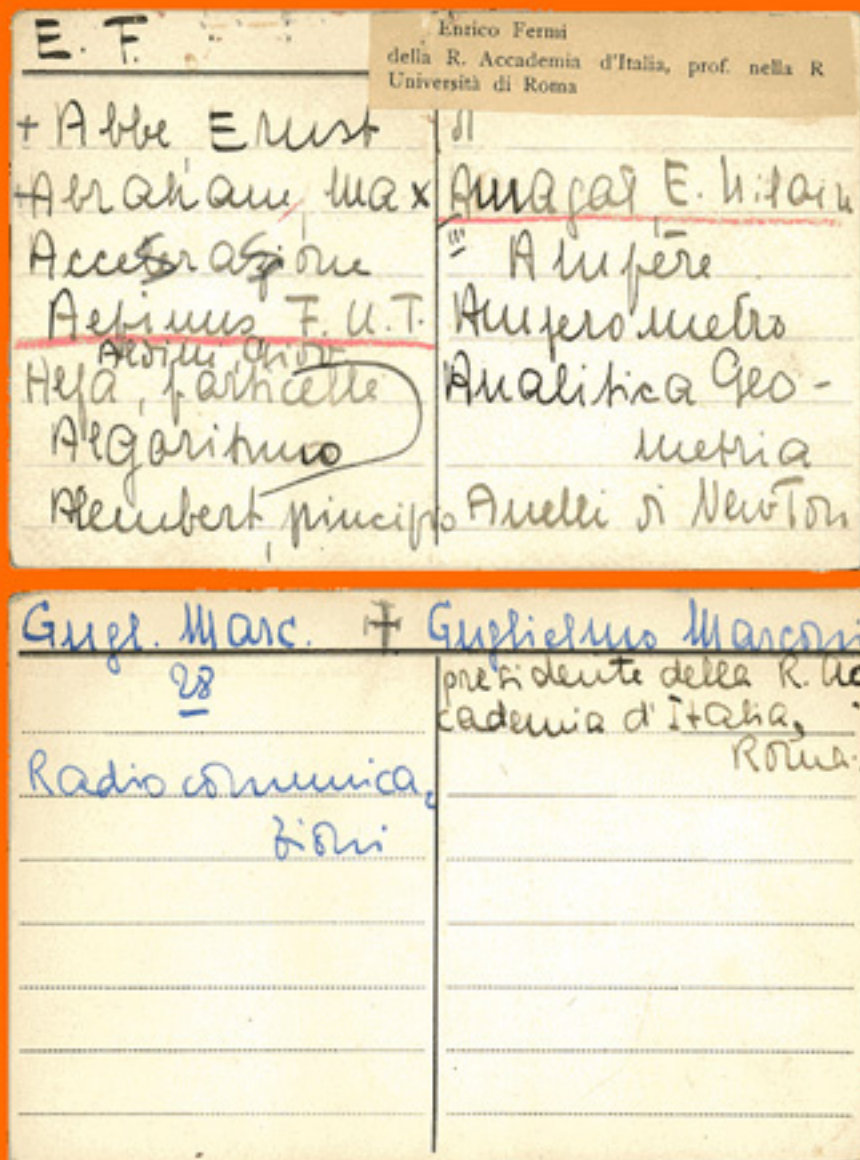 E. F.
Enrico Fermi
della R. Accademia d'Italia, prof. nella R
Università di Roma
+ Abbe Ernst
+ Abraham, Max
Accelerazione
Aepinus F. U. T.
Aldini Giov.
Alfa, particelle
Algoritmo
Alembert, principio
II
Amagat E. Hilain
III
Ampère
Amperometro
Analitica Geo-
metria
Anelli di Newton
Gugl. Marc. + Guglielmo Marconi
28
presidente della R. Ac
cademia d'Italia,
Roma.
Radiocomunica-
zioni